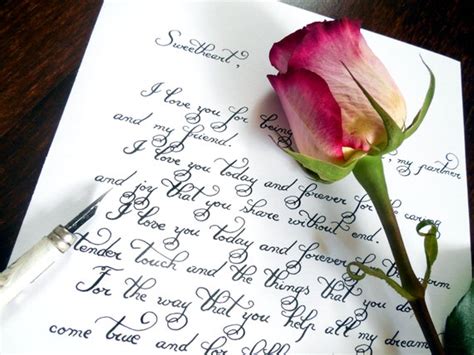 Sweetheart,
I love you for being my partner
and my friend.
I love you today and forever for the caring
and joy that you share without end.
I love you today and forever
tender touch and the things that you do,
For the way that you help all my dream
come true and for